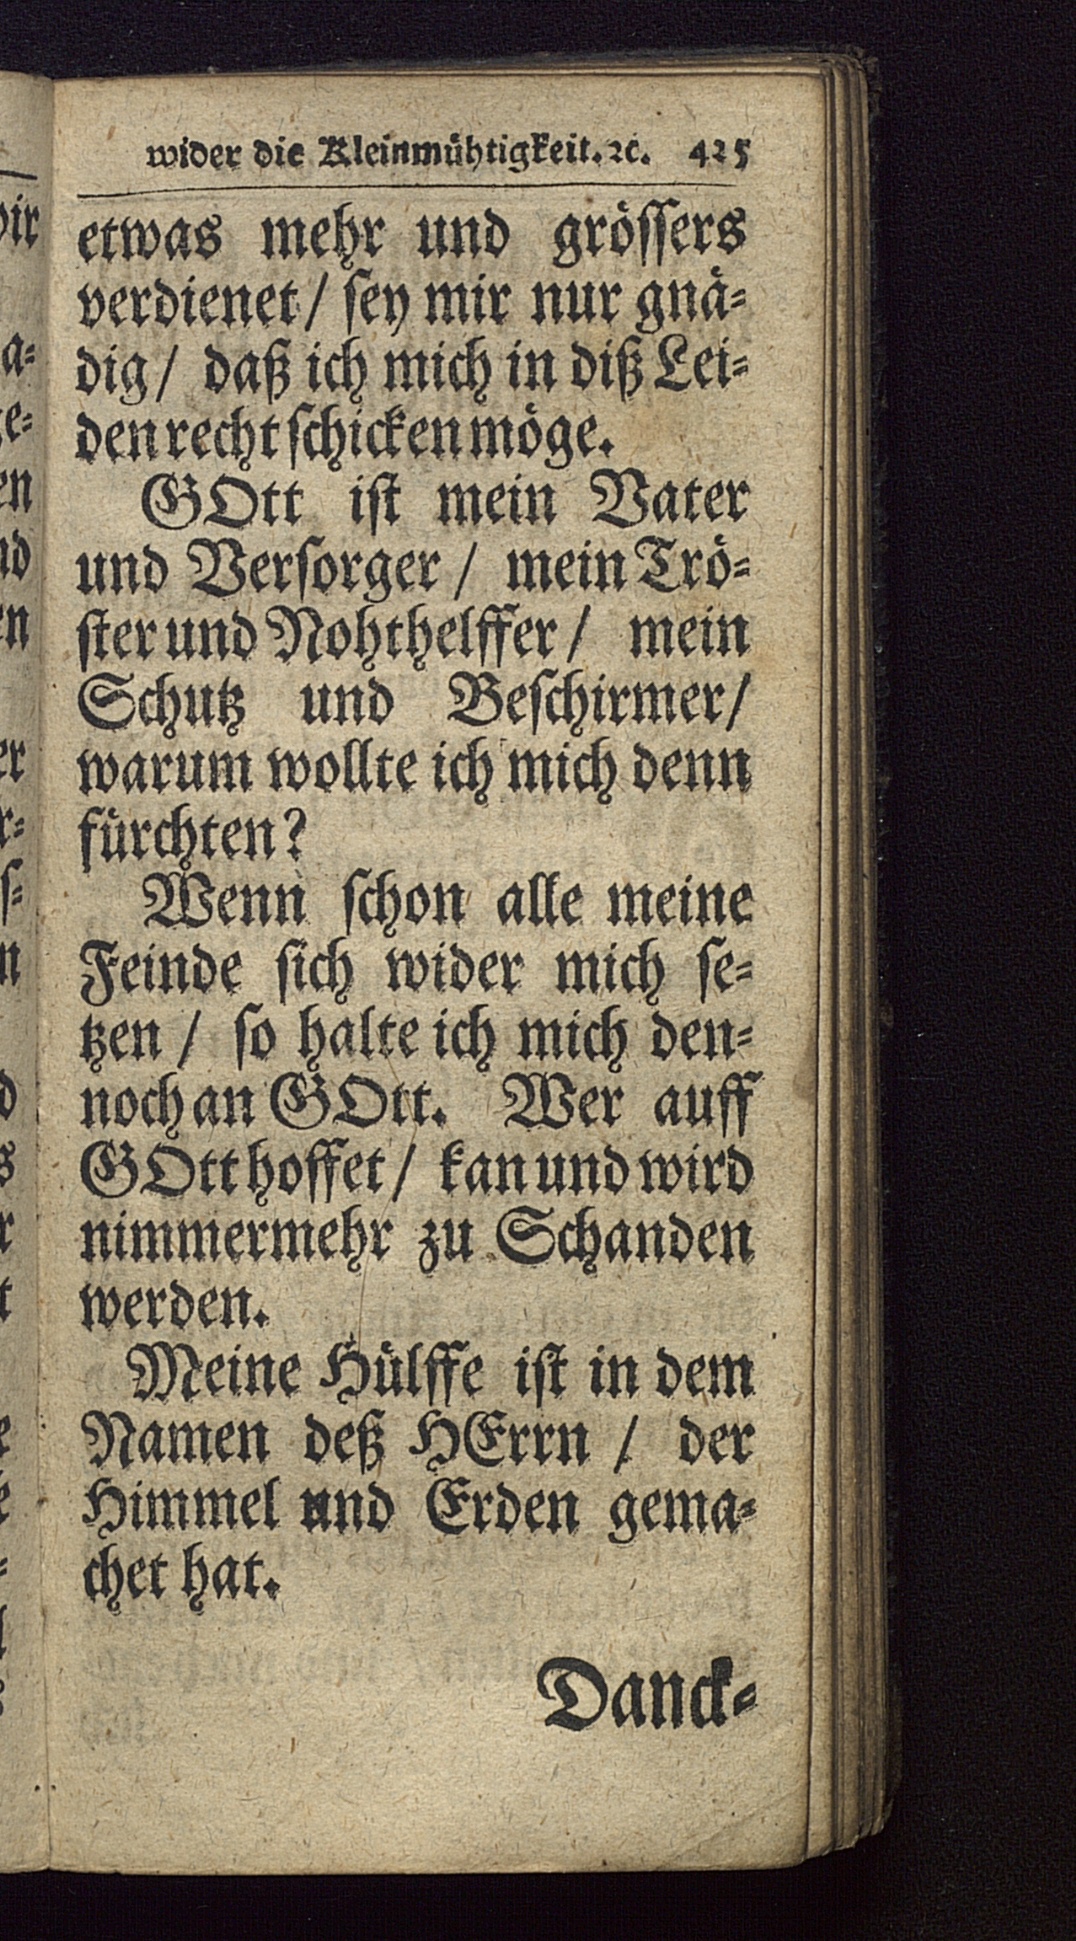 wider die Kleinmühtigkeit. ꝛc. 425
etwas mehr und gröſſers
verdienet / ſey mir nur gnä⸗
dig / daß ich mich in diß Lei⸗
den recht ſchicken möge.
GOtt iſt mein Vater
und Verſorger / mein Trö⸗
ſter und Nohthelffer / mein
Schutz und Beſchirmer /
warum wollte ich mich denn
fürchten?
Wenn ſchon alle meine
Feinde ſich wider mich ſe⸗
tzen / ſo halte ich mich den⸗
noch an GOtt. Wer auff
GOtt hoffet / kan und wird
nimmermehr zu Schanden
werden.
Meine Hülffe iſt in dem
Namen deß HErrn / der
Himmel und Erden gema⸗
chet hat.
Danck⸗